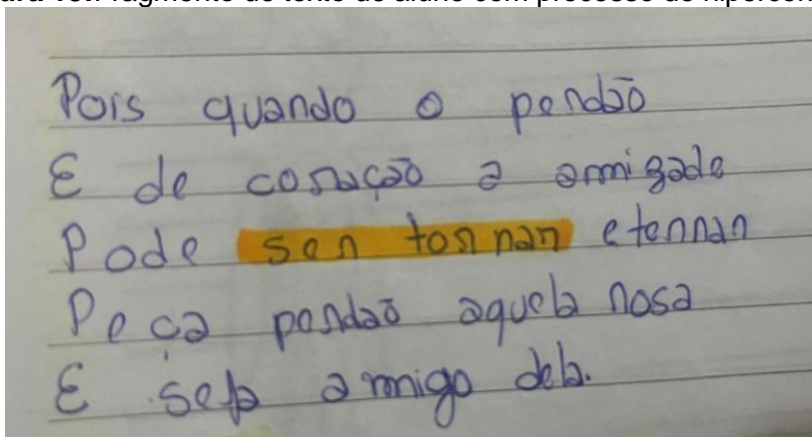 texto do aluno com processo de
Pois quando o perdão
E de coração a amizade
Pode ser tornar eternar
Peça perdão aquela rosa
E seja amigo dela.